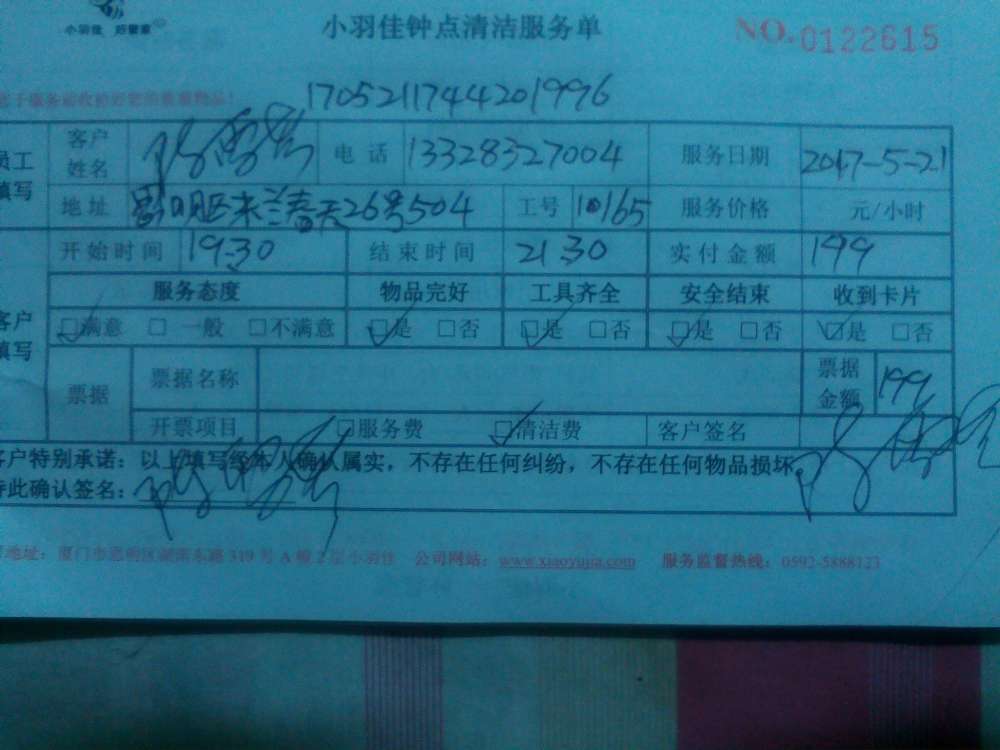 小羽佳 好管家
小羽佳钟点清洁服务单
NO. 0122615
1705211744201996
员工填写
客户姓名 电话 13328327004 服务日期 2017-5-21
地址 思明区未兰春天26号504 工号 10165 服务价格 元/小时
开始时间 19:30 结束时间 21:30 实付金额 199
客户填写
服务态度 物品完好 工具齐全 安全结束 收到卡片
□满意 □一般 □不满意 □是 □否 □是 □否 □是 □否 □是 □否
票据 票据名称 票据金额 199
开票项目 □服务费 □清洁费 客户签名
客户特别承诺：以上填写经本人确认属实，不存在任何纠纷，不存在任何物品损坏
特此确认签名：
地址：厦门市思明区湖滨东路319号A幢2层小羽佳 公司网站：www.xiaoyujia.com 服务监督热线：0592-5888123